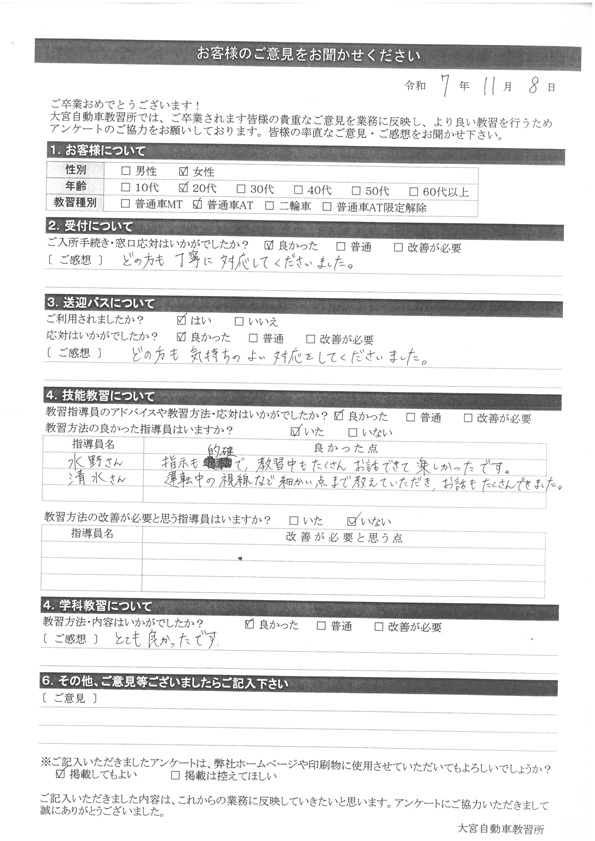 お客様のご意見をお聞かせください
令和 7 年 11 月 8 日
ご卒業おめでとうございます！
大宮自動車教習所では、ご卒業されます皆様の貴重なご意見を業務に反映し、より良い教習を行うため
アンケートのご協力をお願いしております。皆様の率直なご意見・ご感想をお聞かせ下さい。
1. お客様について
性別 □ 男性 ☑ 女性
年齢 □ 10代 ☑ 20代 □ 30代 □ 40代 □ 50代 □ 60代以上
教習種別 □ 普通車MT ☑ 普通車AT □ 二輪車 □ 普通車AT限定解除
2. 受付について
ご入所手続き・窓口応対はいかがでしたか？ ☑ 良かった □ 普通 □ 改善が必要
〔 ご感想 〕 どの方も丁寧に対応してくださいました。
3. 送迎バスについて
ご利用されましたか？ ☑ はい □ いいえ
応対はいかがでしたか？ ☑ 良かった □ 普通 □ 改善が必要
〔 ご感想 〕 どの方も気持ちのよい対応をしてくださいました。
4. 技能教習について
教習指導員のアドバイスや教習方法・応対はいかがでしたか？ ☑ 良かった □ 普通 □ 改善が必要
教習方法の良かった指導員はいますか？ ☑ いた □ いない
指導員名 良かった点
水野さん 指示も的確で、教習中もたくさんお話できて楽しかったです。
清水さん 運転中の視線など細かい点まで教えていただき、お話もたくさんできました。
教習方法の改善が必要と思う指導員はいますか？ □ いた ☑ いない
指導員名 改善が必要と思う点
4. 学科教習について
教習方法・内容はいかがでしたか？ ☑ 良かった □ 普通 □ 改善が必要
〔 ご感想 〕 とても良かったです。
6. その他、ご意見等ございましたらご記入下さい
〔 ご意見 〕
※ご記入いただきましたアンケートは、弊社ホームページや印刷物に使用させていただいてもよろしいでしょうか？
☑ 掲載してもよい □ 掲載は控えてほしい
ご記入いただきました内容は、これからの業務に反映していきたいと思います。アンケートにご協力いただきまして
誠にありがとうございました。
大宮自動車教習所